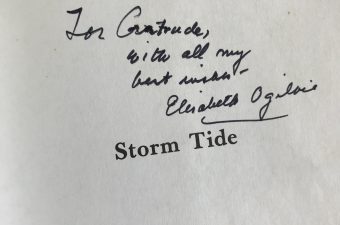 For Gertrude,
with all my
best wishes-
Elisabeth Ogilvie
Storm Tide